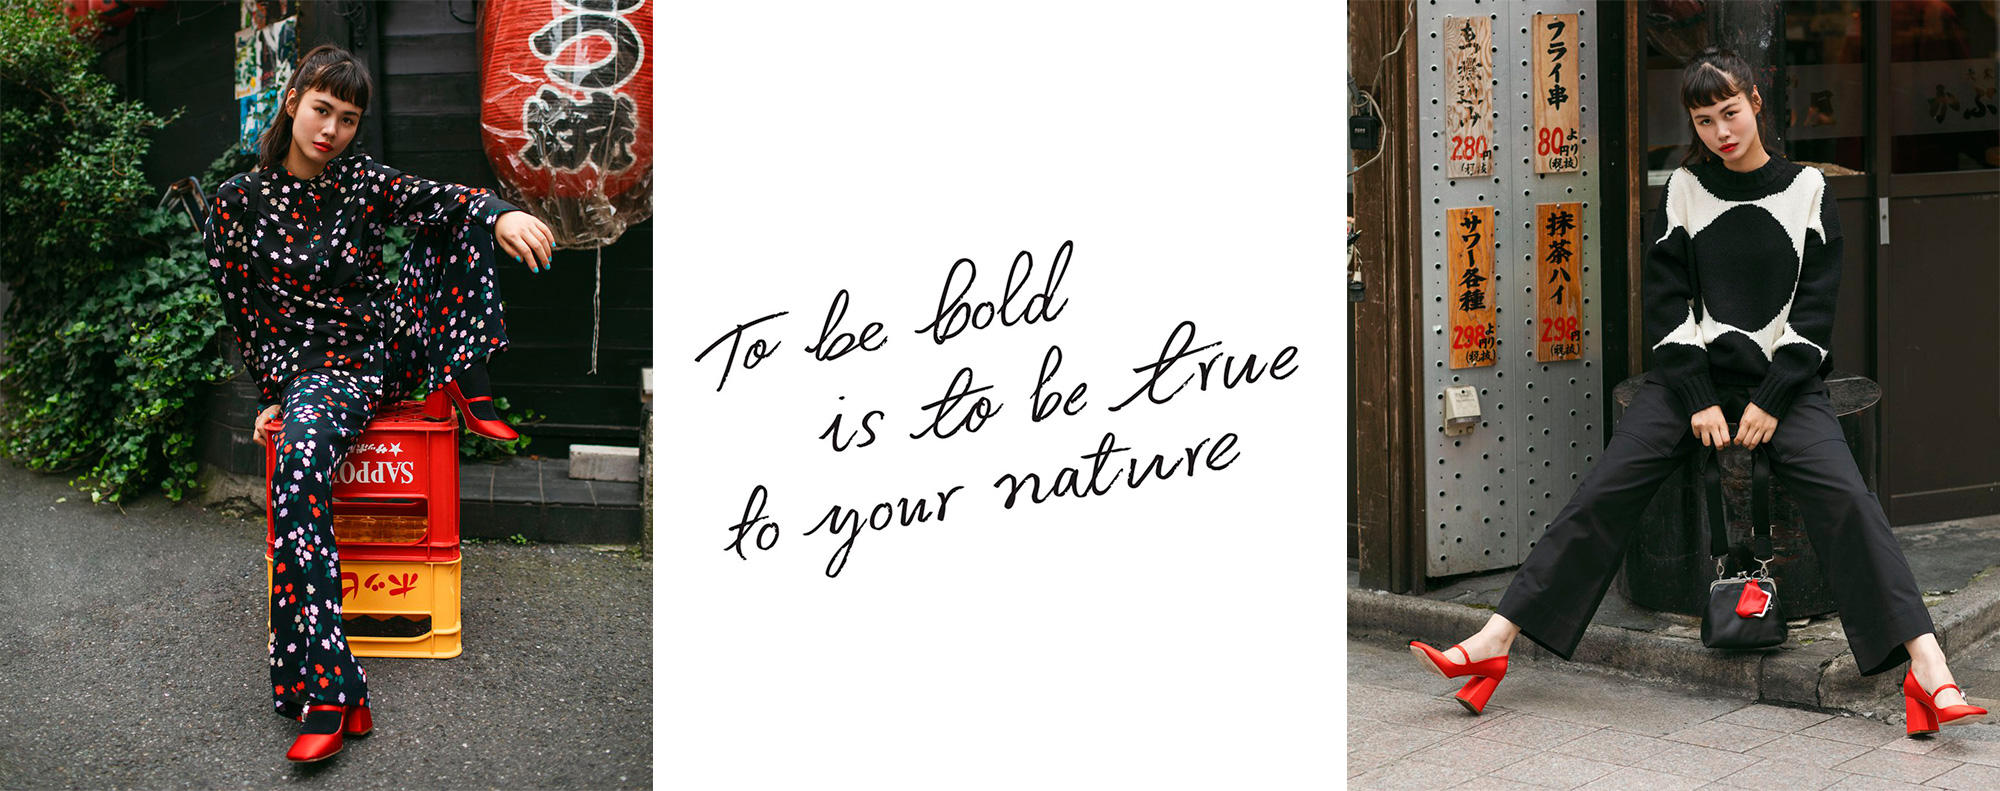 SAPPO
★サッポ
ホッピ
To be bold
is to be true
to your nature
煮込み
280円
(税抜)
フライ串
80円より
(税抜)
サワー各種
298円より
(税抜)
抹茶ハイ
298円
(税抜)